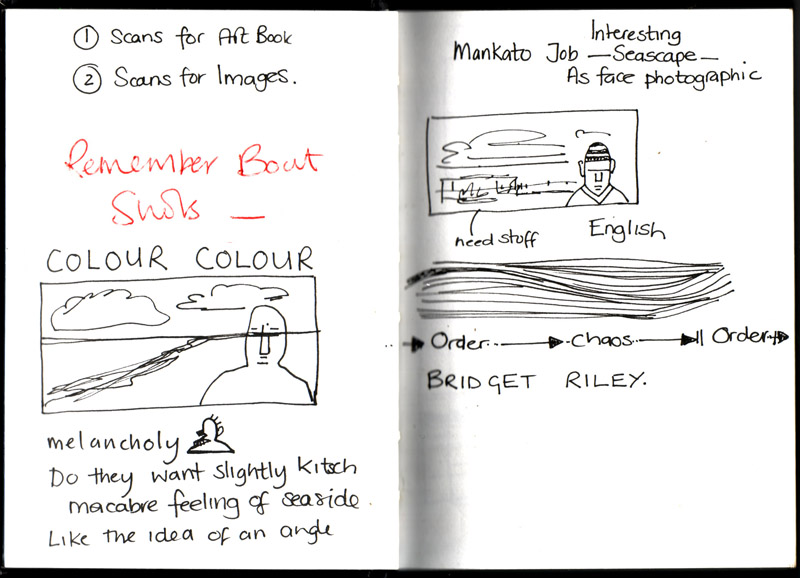 ① Scans for Art Book
② Scans for Images.
Remember Bout
Shots —
COLOUR COLOUR
melancholy
Do they want slightly kitsch
macabre feeling of seaside.
Like the idea of an angle
Interesting
Mankato Job — Seascape —
As face photographic
need stuff
English
Order → chaos → Order →
BRIDGET RILEY.